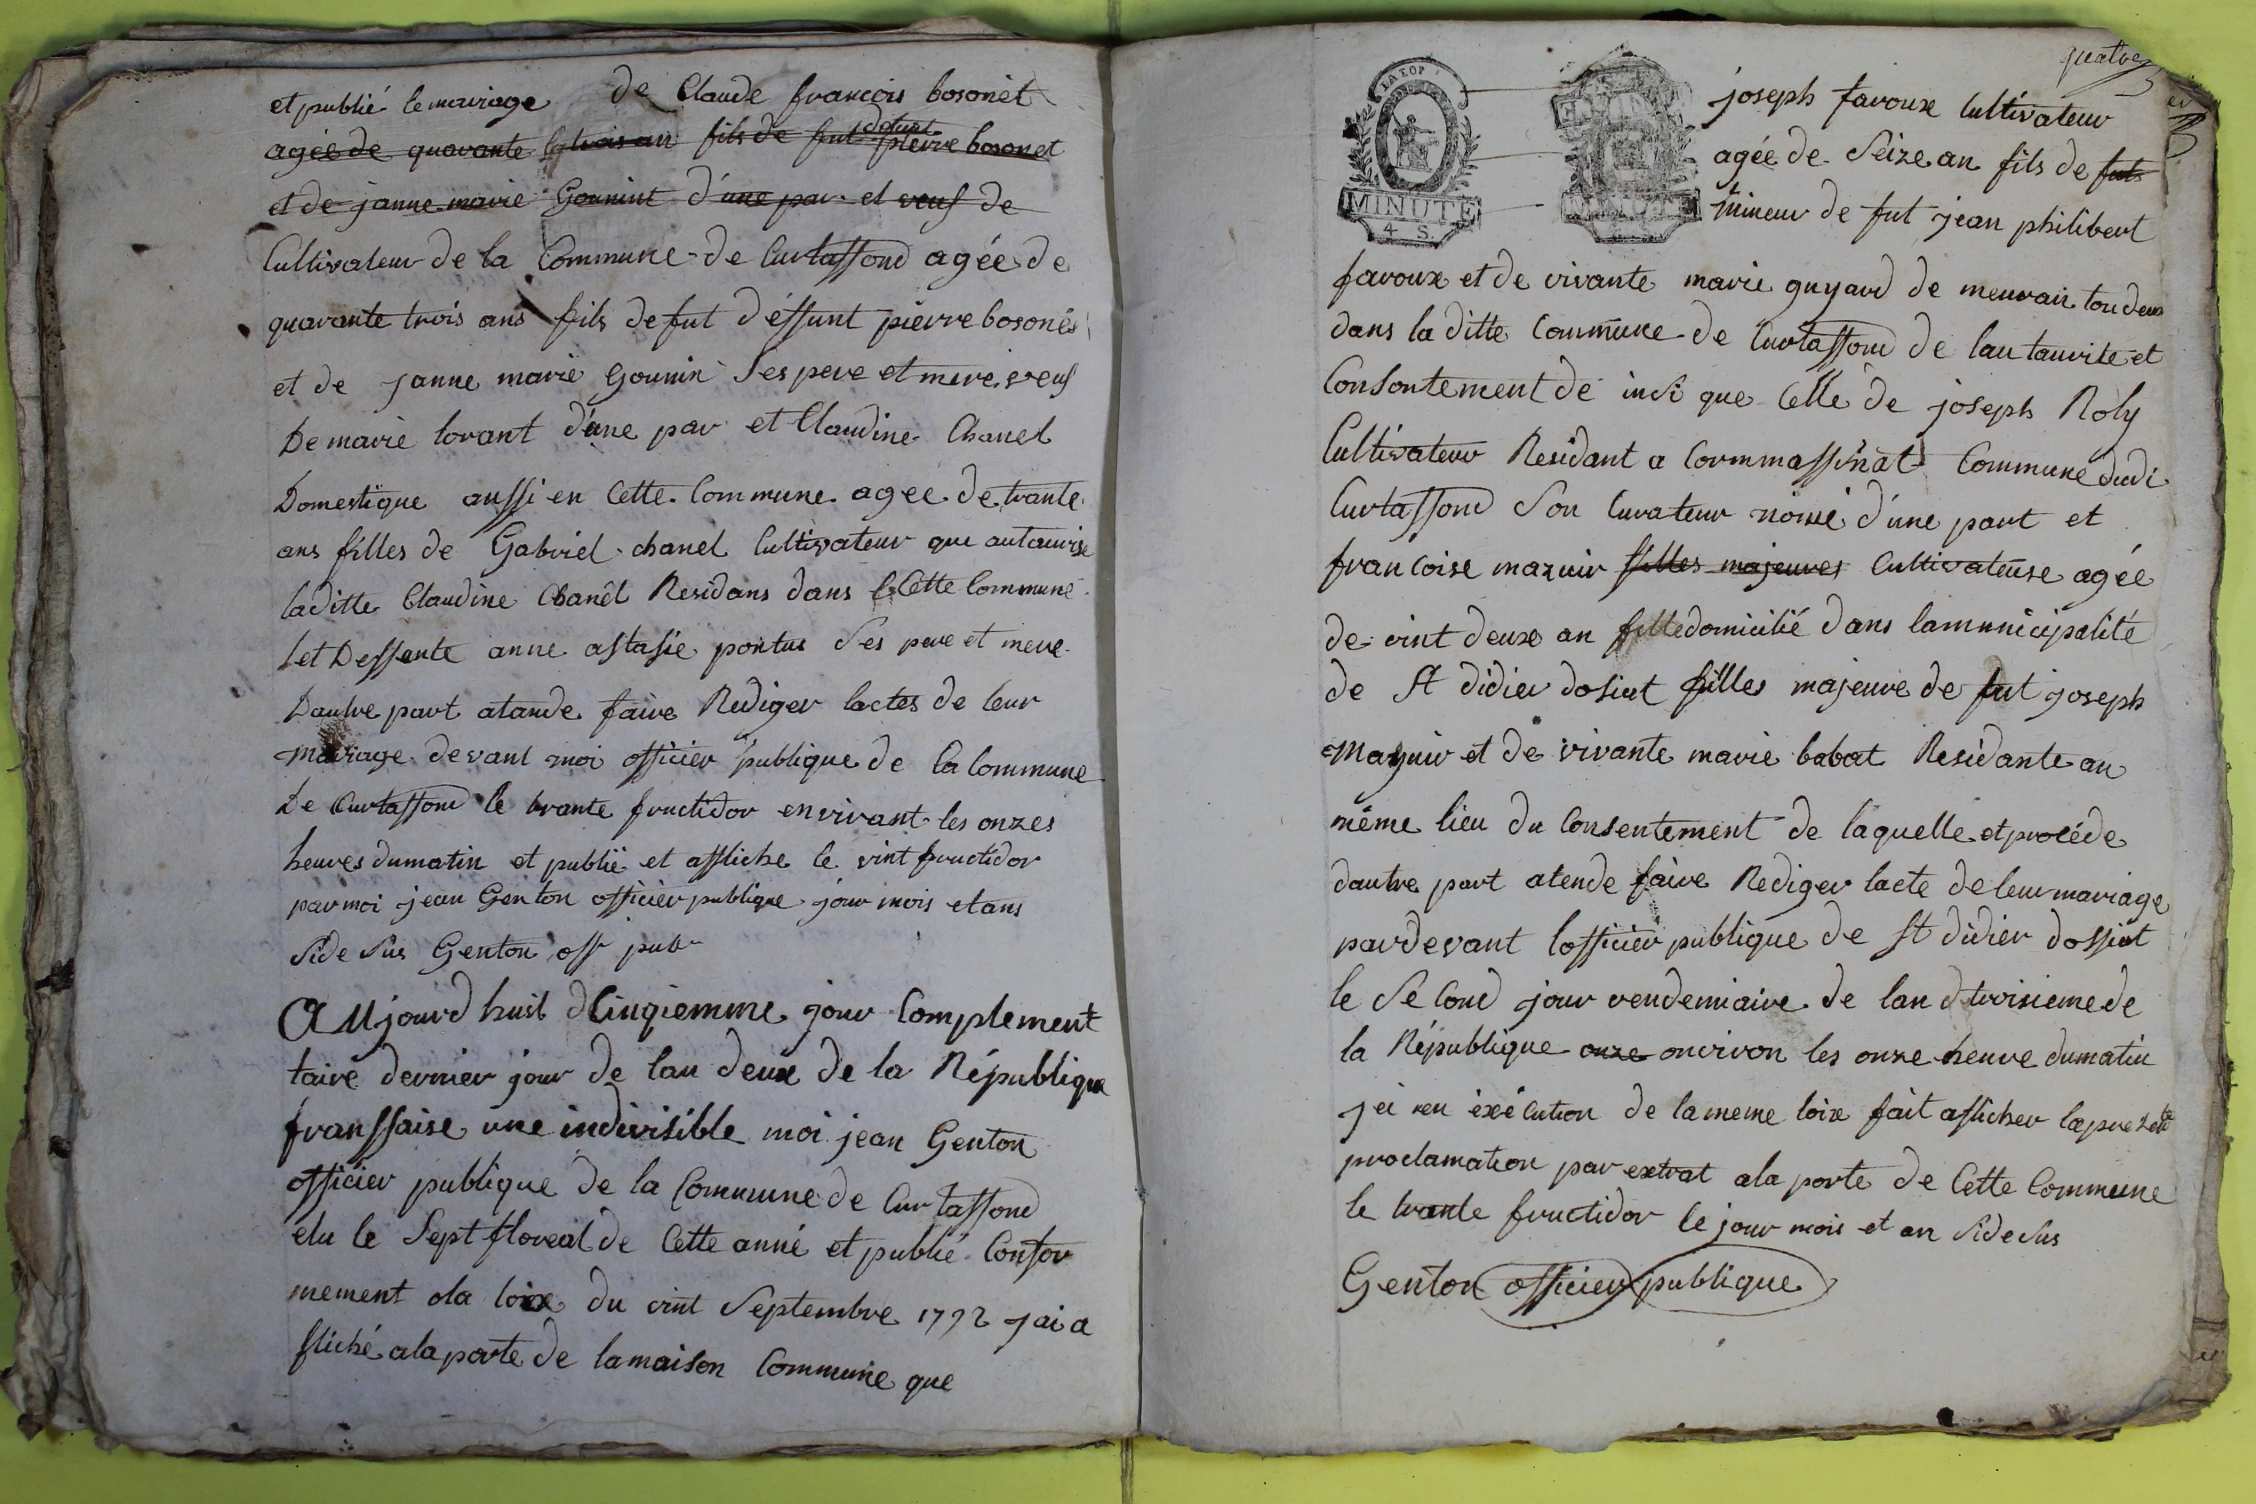 et publié le mariage de Claude francois bosonet
agée de quarante trois an fils de fut defunt pierre bosonet
et de janne marie Gounint d'une par et veuf de
Cultivateur de la Commune de Curtassond agée de
quarante trois ans fils de fut déffunt pierre bosonés
et de janne marie Gounin Ses pere et mere veuf
De marie lorant d'une par et Claudine Chanel
Domestique aussi en Cette Commune agee de trante
ans filles de Gabriel chanel Cultivateur que autaurise
laditte Claudine Chanêl Residans dans Cette Commune
et Deffente anne astasie pontus Ses pere et mere
Dautre part atande faire Rediger lactes de leur
mariage devant moi officier publique de la Commune
De Curtassond le trante fructidor envirant les onzes
heures dumatin et publié et affliche le vint fructidor
par moi jean Genton officier publique jour mois et ans
Side Sus Genton off pub
AUjourdhuit Cinqiemme jour Complement
taire dernier jour de lan deux de la République
franssaise une indivisible moi jean Genton
officier publique de la Commune de Curtassond
elu le Sept floreal de Cette anné et publié Confor
mement ala loix du vint Septembre 1792 jai a
fliché ala porte de lamaison Commune que
quatre
MINUTE
4 S.
joseph favoux Cultivateur
agée de Seize an fils de fut
mineur de fut jean philibert
favoux et de vivante marie guyard de meurair tou deux
dans la ditte Commune de Curtassond de lautaurite et
Consontement de insi que Celle de joseph Roly
Cultivateur Residant a Cormmassinat Commune dudi
Curtassond Son Curateur nomé d'une part et
francoise mazuir filles majeures Cultivateuse agée
de vint deux an fille domicilié dans lamunicipalité
de St didier dosiat filles majeure de fut joseph
Mazuir et de vivante marie babat Residante au
même lieu du Consentement de laquelle et procéde
dautre part atende faire Rediger lacte de leur mariage
pardevant lofficier publique de St didier dossiat
le Se Cond jour vendemiaire de lan troisieme de
la République onze onviron les onze heure dumatin
jei en éxéCution de lameme loix fait afficher laprezente
proclamation par extrat ala porte de Cette Commune
le trante fructidor le jour mois et an Side Sus
Genton officier publique